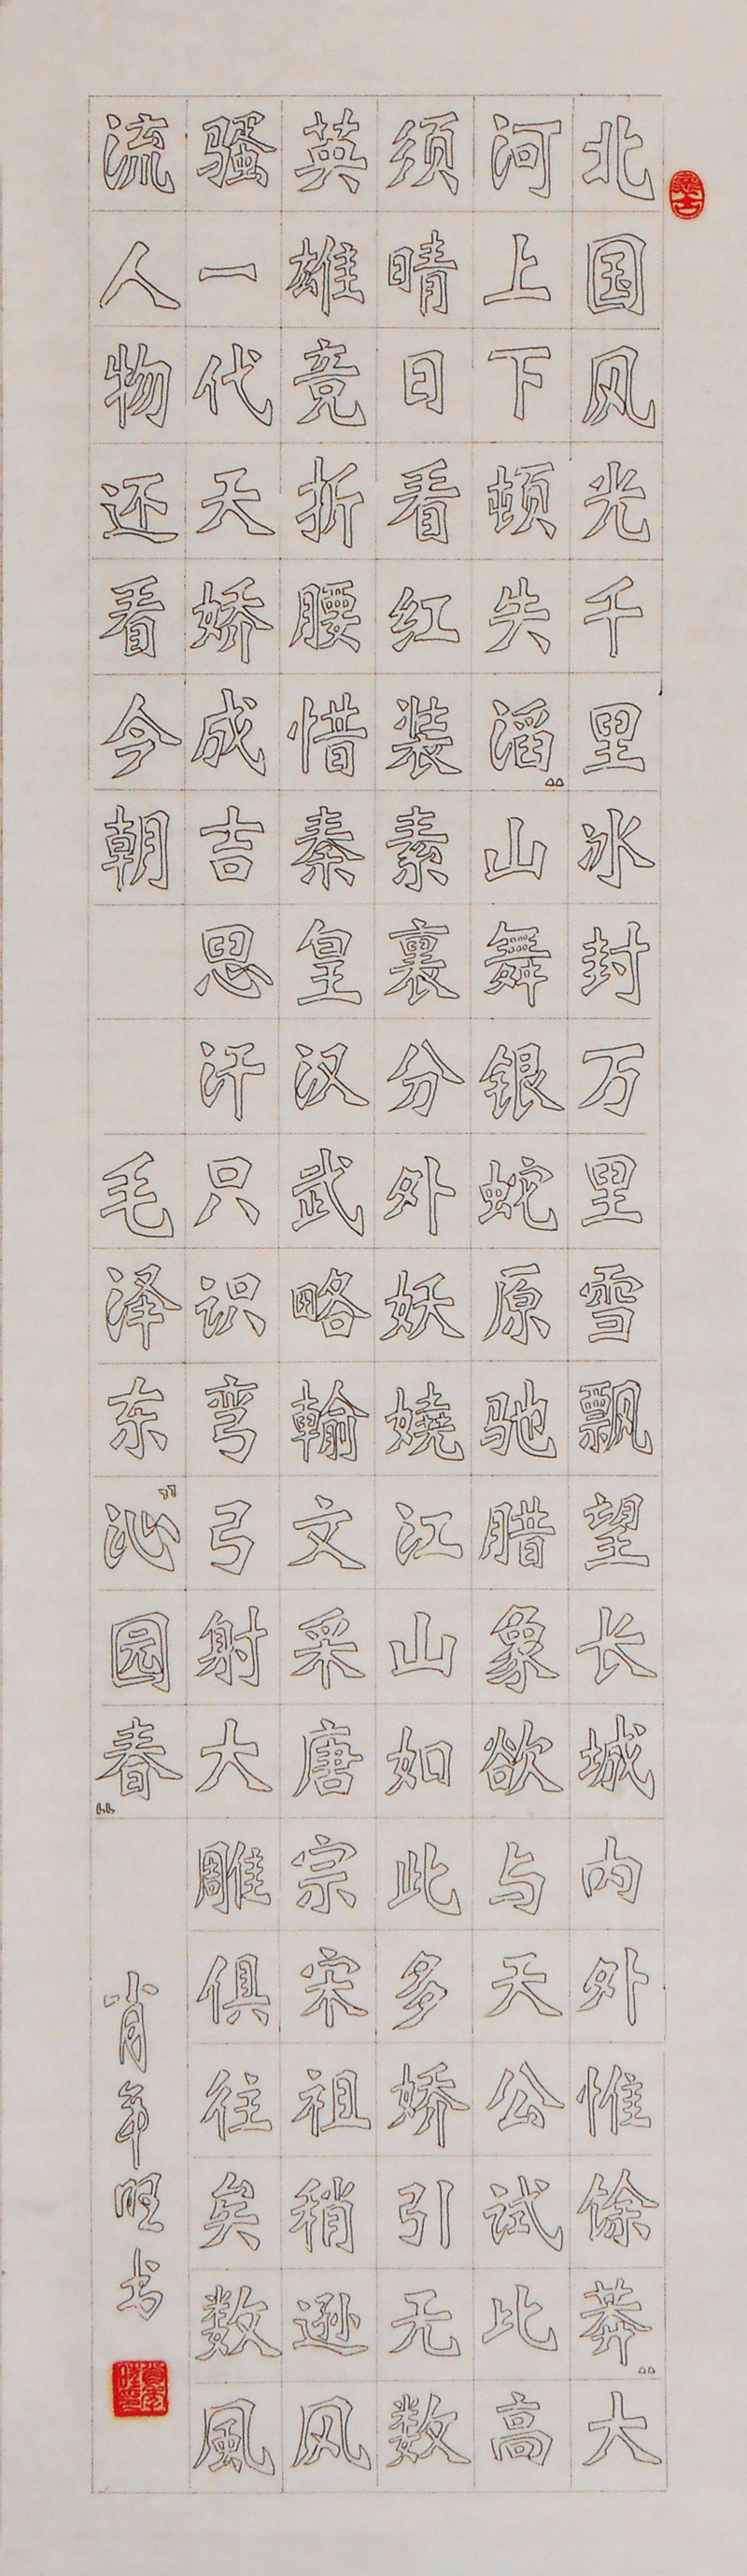 北国风光千里冰封万里雪飘望长城内外惟馀莽〃大
河上下顿失滔〃山舞银蛇原驰腊象欲与天公试比高
须晴日看红装素裹分外妖嬈江山如此多娇引无数
英雄竞折腰惜秦皇汉武略輸文采唐宗宋祖稍逊风
骚一代天娇成吉思汗只识弯弓射大雕俱往矣数風
流人物还看今朝 毛泽东“沁园春”
肖年旺书